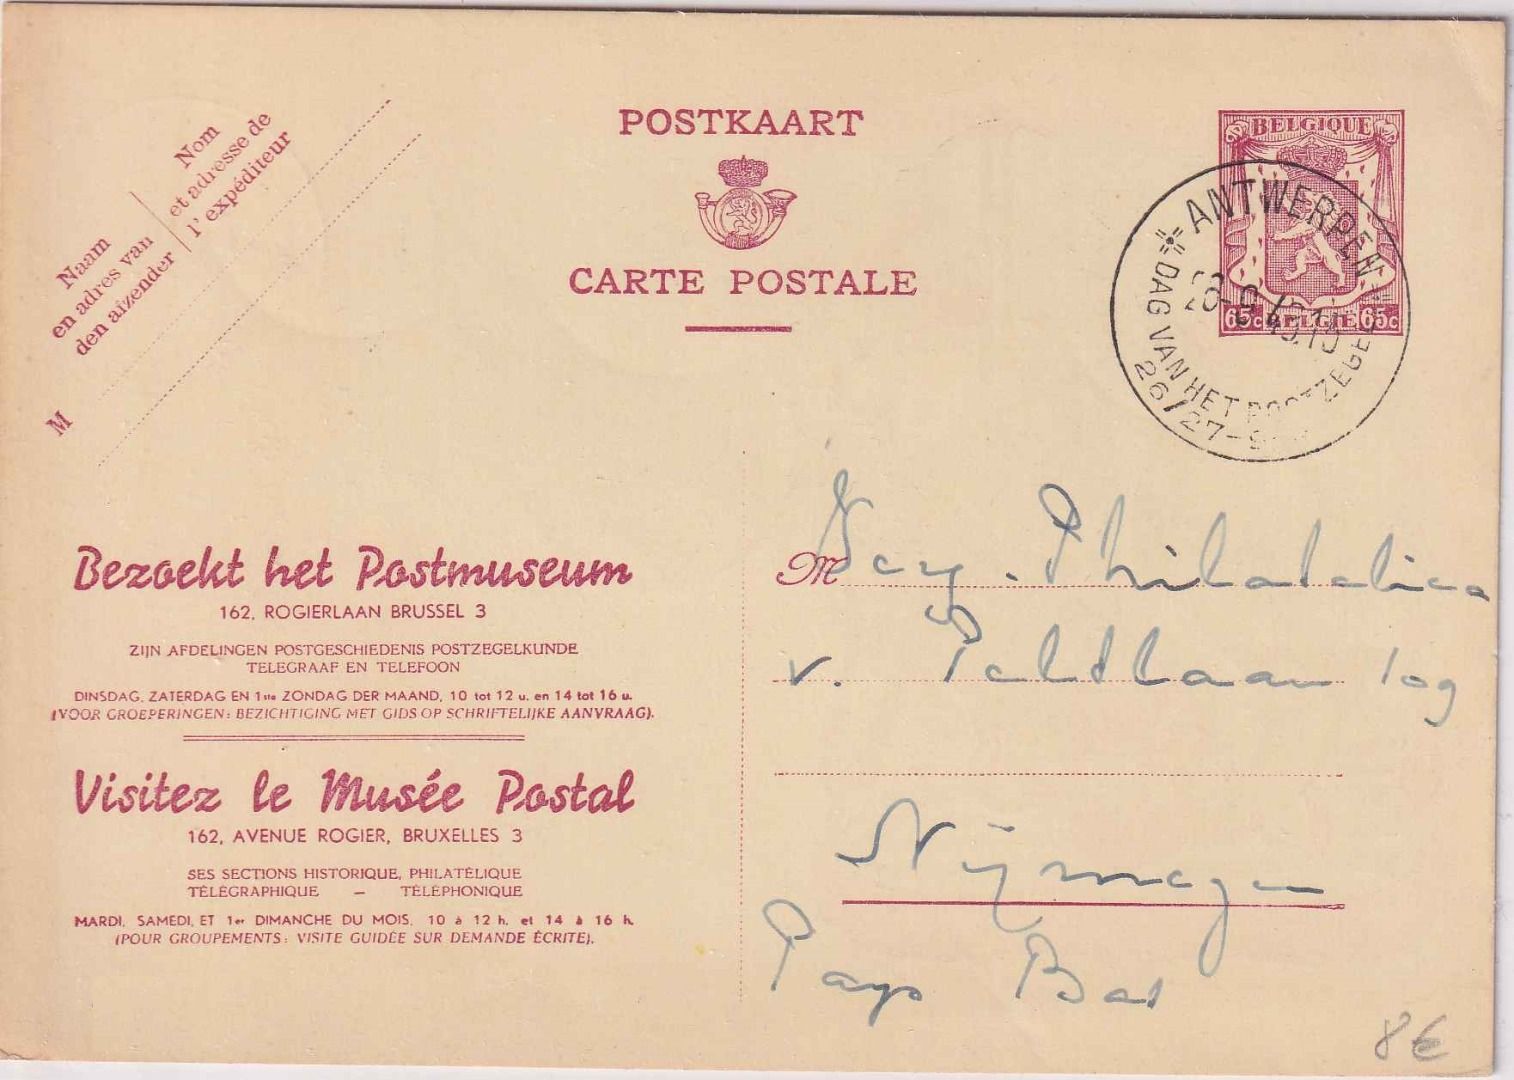 POSTKAART
CARTE POSTALE
Nom
et adresse de
l'expéditeur
Naam
en adres van
den afzender
M
BELGIQUE
65c BELGIE 65c
ANTWERPEN
DAG VAN HET POSTZEGEL
26/27-9
Bezoekt het Postmuseum
162, ROGIERLAAN BRUSSEL 3
ZIJN AFDELINGEN POSTGESCHIEDENIS POSTZEGELKUNDE
TELEGRAAF EN TELEFOON
DINSDAG, ZATERDAG EN 1ste ZONDAG DER MAAND, 10 tot 12 u. en 14 tot 16 u.
(VOOR GROEPERINGEN: BEZICHTIGING MET GIDS OP SCHRIFTELIJKE AANVRAAG).
Visitez le Musée Postal
162, AVENUE ROGIER, BRUXELLES 3
SES SECTIONS HISTORIQUE, PHILATÉLIQUE
TÉLÉGRAPHIQUE — TÉLÉPHONIQUE
MARDI, SAMEDI, ET 1er DIMANCHE DU MOIS, 10 à 12 h. et 14 à 16 h.
(POUR GROUPEMENTS: VISITE GUIDÉE SUR DEMANDE ÉCRITE).
M Philatelica
v. Peltlaan 109
Nijmegen
Pays Bas
8€